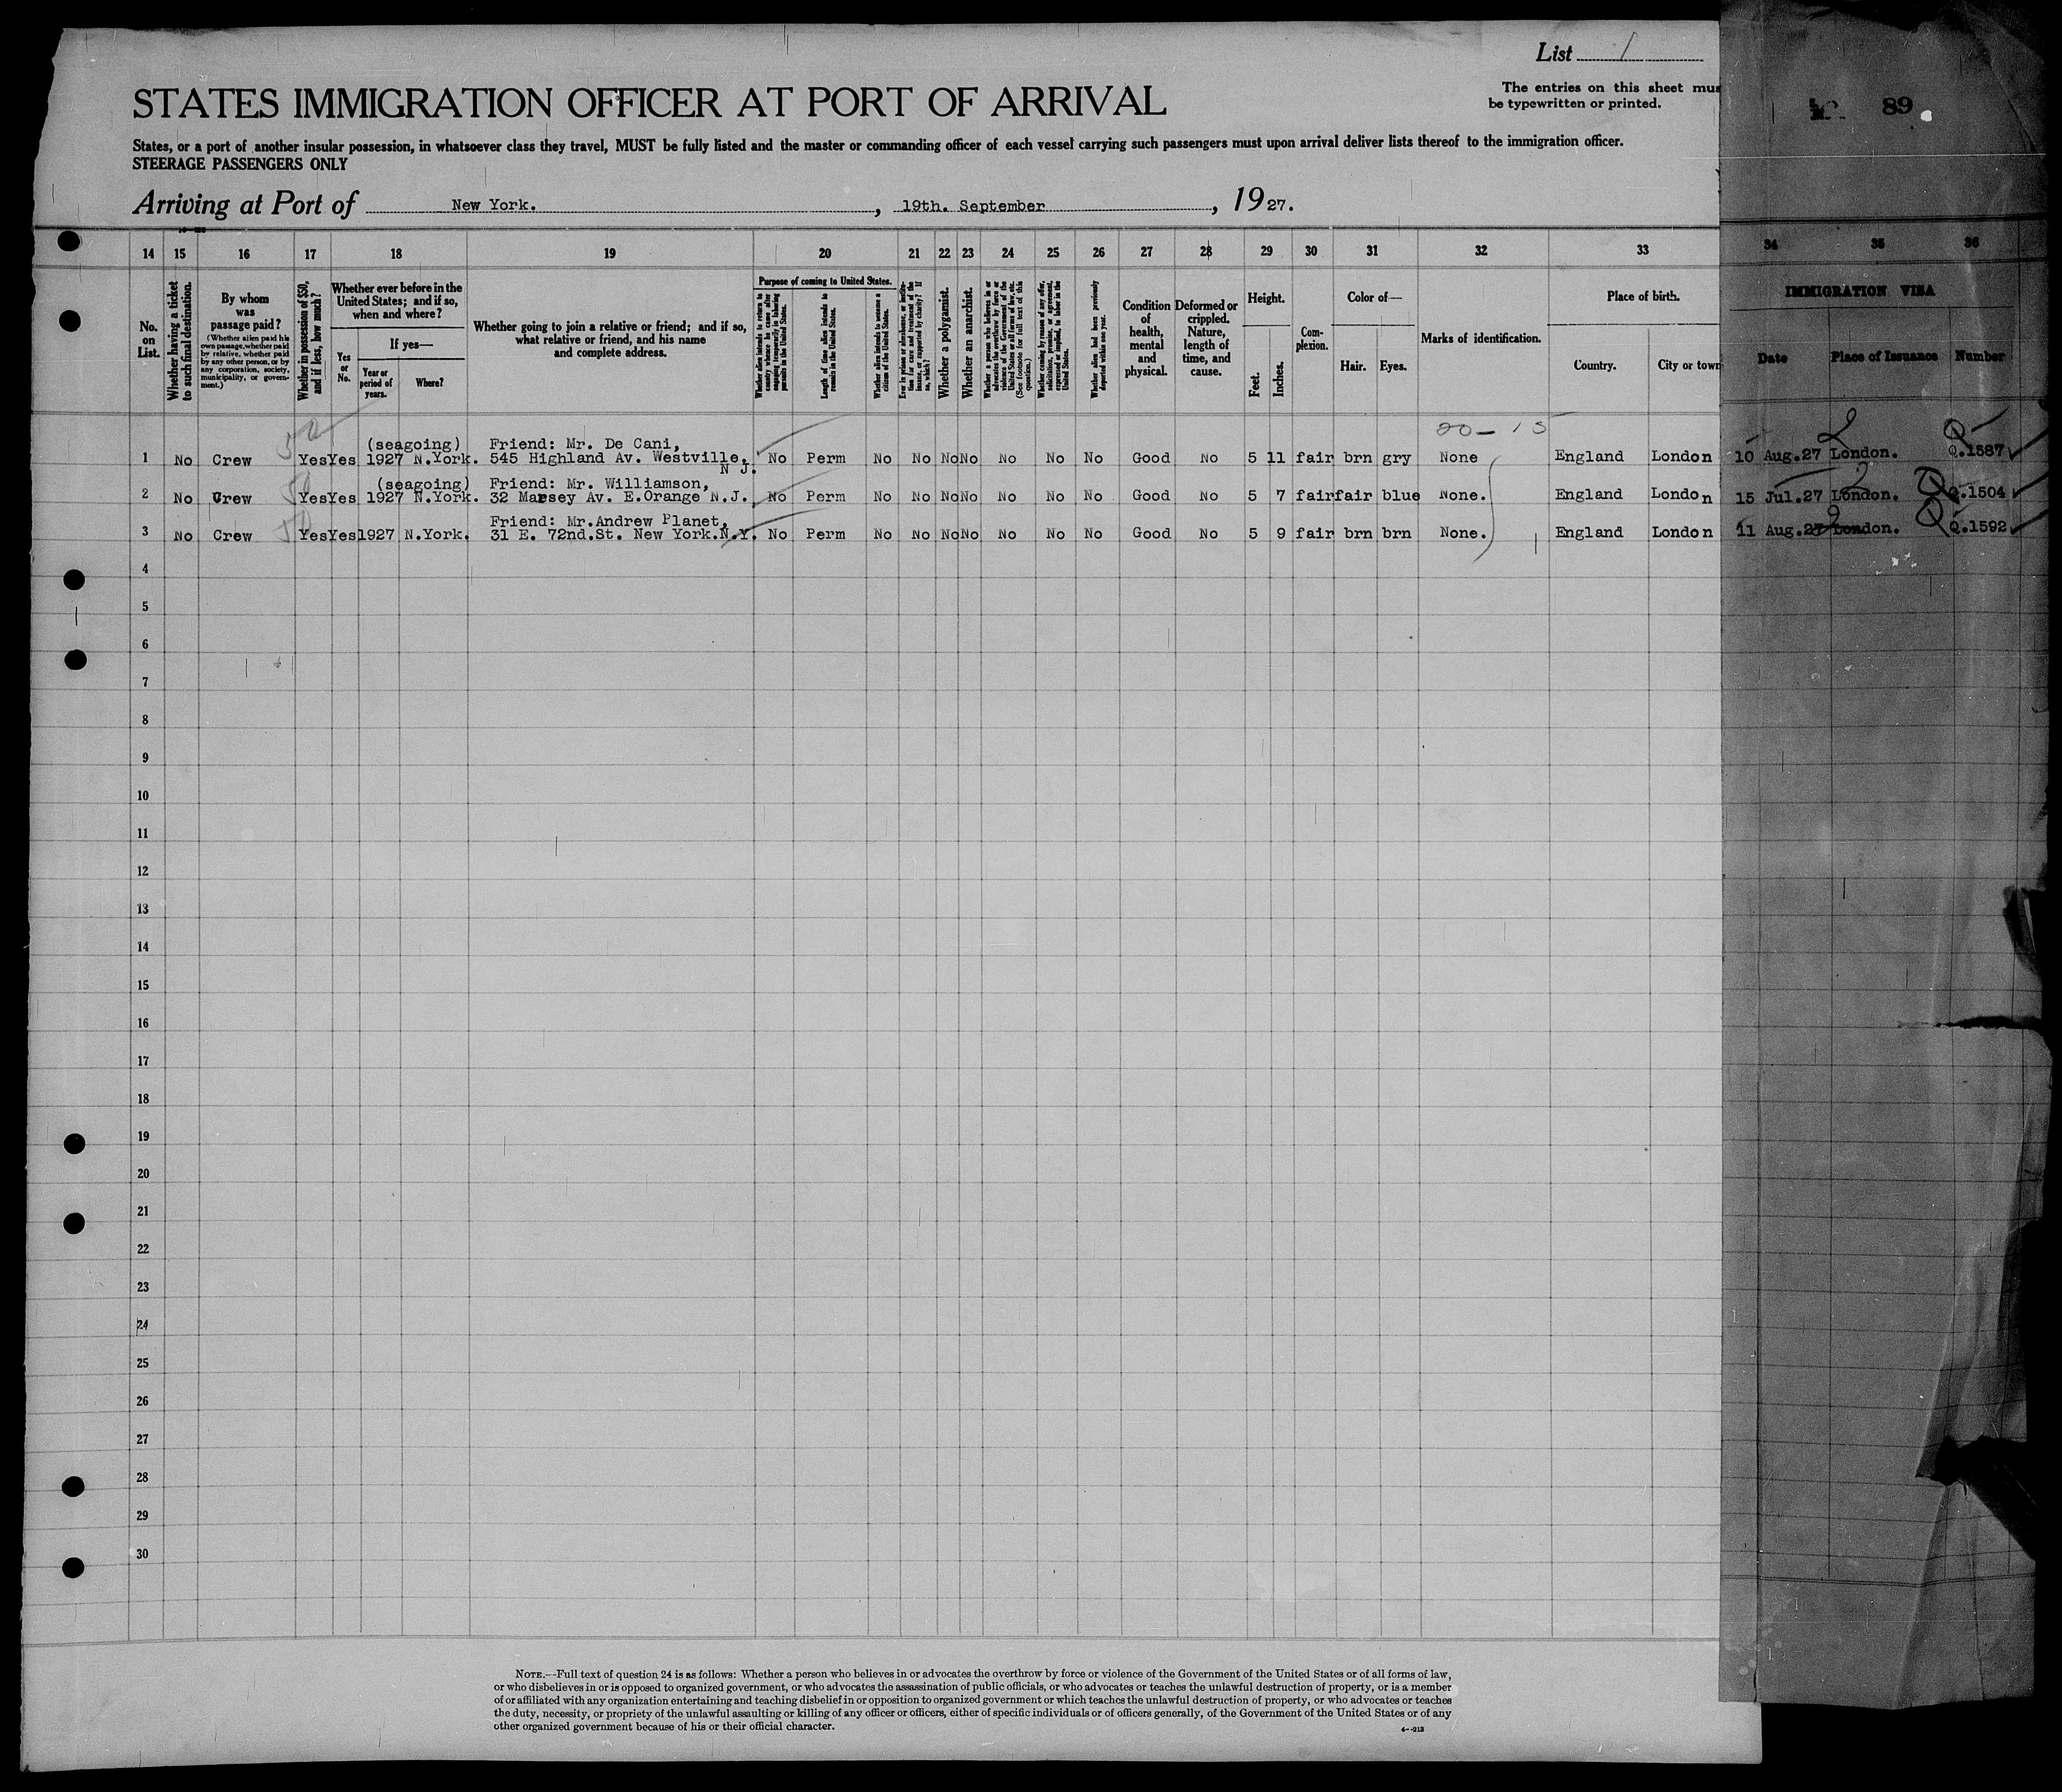 List 1
STATES IMMIGRATION OFFICER AT PORT OF ARRIVAL
The entries on this sheet mus
be typewritten or printed.
89
States, or a port of another insular possession, in whatsoever class they travel, MUST be fully listed and the master or commanding officer of each vessel carrying such passengers must upon arrival deliver lists thereof to the immigration officer.
STEERAGE PASSENGERS ONLY
Arriving at Port of New York. , 19th. September , 1927.
14 15 16 17 18 19 20 21 22 23 24 25 26 27 28 29 30 31 32 33 34 35 36
No. on List.
Whether having a ticket to such final destination.
By whom was passage paid?
(Whether alien paid his own passage, whether paid by relative, whether paid by any other person, or by any corporation, society, municipality, or government.)
Whether in possession of $50, and if less, how much?
Whether ever before in the United States; and if so, when and where?
Yes or No.
If yes—
Year or period of years.
Where?
Whether going to join a relative or friend; and if so, what relative or friend, and his name and complete address.
Purpose of coming to United States.
Whether alien intends to return to country whence he came after engaging temporarily in laboring pursuits in the United States.
Length of time alien intends to remain in the United States.
Whether alien intends to become a citizen of the United States.
Ever in prison or almshouse, or institution for care and treatment of the insane, or supported by charity? If so, which?
Whether a polygamist.
Whether an anarchist.
Whether a person who believes in or advocates the overthrow by force or violence of the Government of the United States or all forms of law, etc. (See footnote for full text of this question.)
Whether coming by reason of any offer, solicitation, promise, or agreement, expressed or implied, to labor in the United States.
Whether alien had been previously deported within one year.
Condition of health, mental and physical.
Deformed or crippled. Nature, length of time, and cause.
Height.
Feet.
Inches.
Complexion.
Color of—
Hair.
Eyes.
Marks of identification.
Place of birth.
Country.
City or town
IMMIGRATION VISA
Date
Place of Issuance
Number
50
20— 15
2
(seagoing) Friend: Mr. De Cani,
1 No Crew Yes Yes 1927 N.York. 545 Highland Av. Westville, N J. No Perm No No No No No No No Good No 5 11 fair brn gry None England London 10 Aug.27 London. Q.1587
50
(seagoing) Friend: Mr. Williamson,
2 No Crew Yes Yes 1927 N.York. 32 Marsey Av. E.Orange N.J. No Perm No No No No No No No Good No 5 7 fair fair blue None. England London 15 Jul.27 London. Q.1504
50
Friend: Mr.Andrew Planet,
3 No Crew Yes Yes 1927 N.York. 31 E. 72nd.St. New York.N.Y. No Perm No No No No No No No Good No 5 9 fair brn brn None. England London 11 Aug.27 London. Q.1592
4
5
6
7
8
9
10
11
12
13
14
15
16
17
18
19
20
21
22
23
24
25
26
27
28
29
30
NOTE.--Full text of question 24 is as follows: Whether a person who believes in or advocates the overthrow by force or violence of the Government of the United States or of all forms of law,
or who disbelieves in or is opposed to organized government, or who advocates the assassination of public officials, or who advocates or teaches the unlawful destruction of property, or is a member
of or affiliated with any organization entertaining and teaching disbelief in or opposition to organized government or which teaches the unlawful destruction of property, or who advocates or teaches
the duty, necessity, or propriety of the unlawful assaulting or killing of any officer or officers, either of specific individuals or of officers generally, of the Government of the United States or of any
other organized government because of his or their official character.
4--213